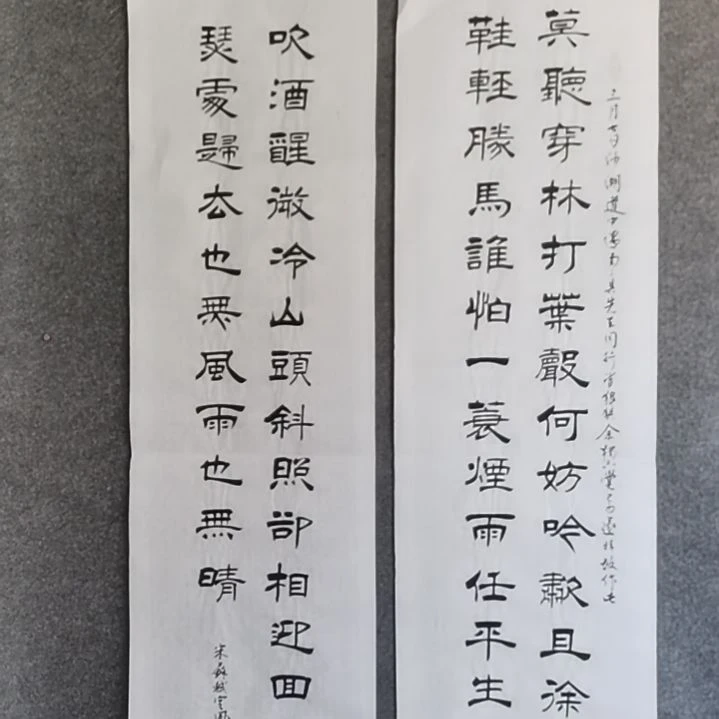 三月七日沙湖道中遇雨雨具先去同行皆狼狽余獨不覺已而遂晴故作此
莫聽穿林打葉聲何妨吟歗且徐
鞋輕勝馬誰怕一蓑煙雨任平生
吹酒醒微冷山頭斜照卻相迎回
瑟處歸去也無風雨也無晴
宋蘇軾定風